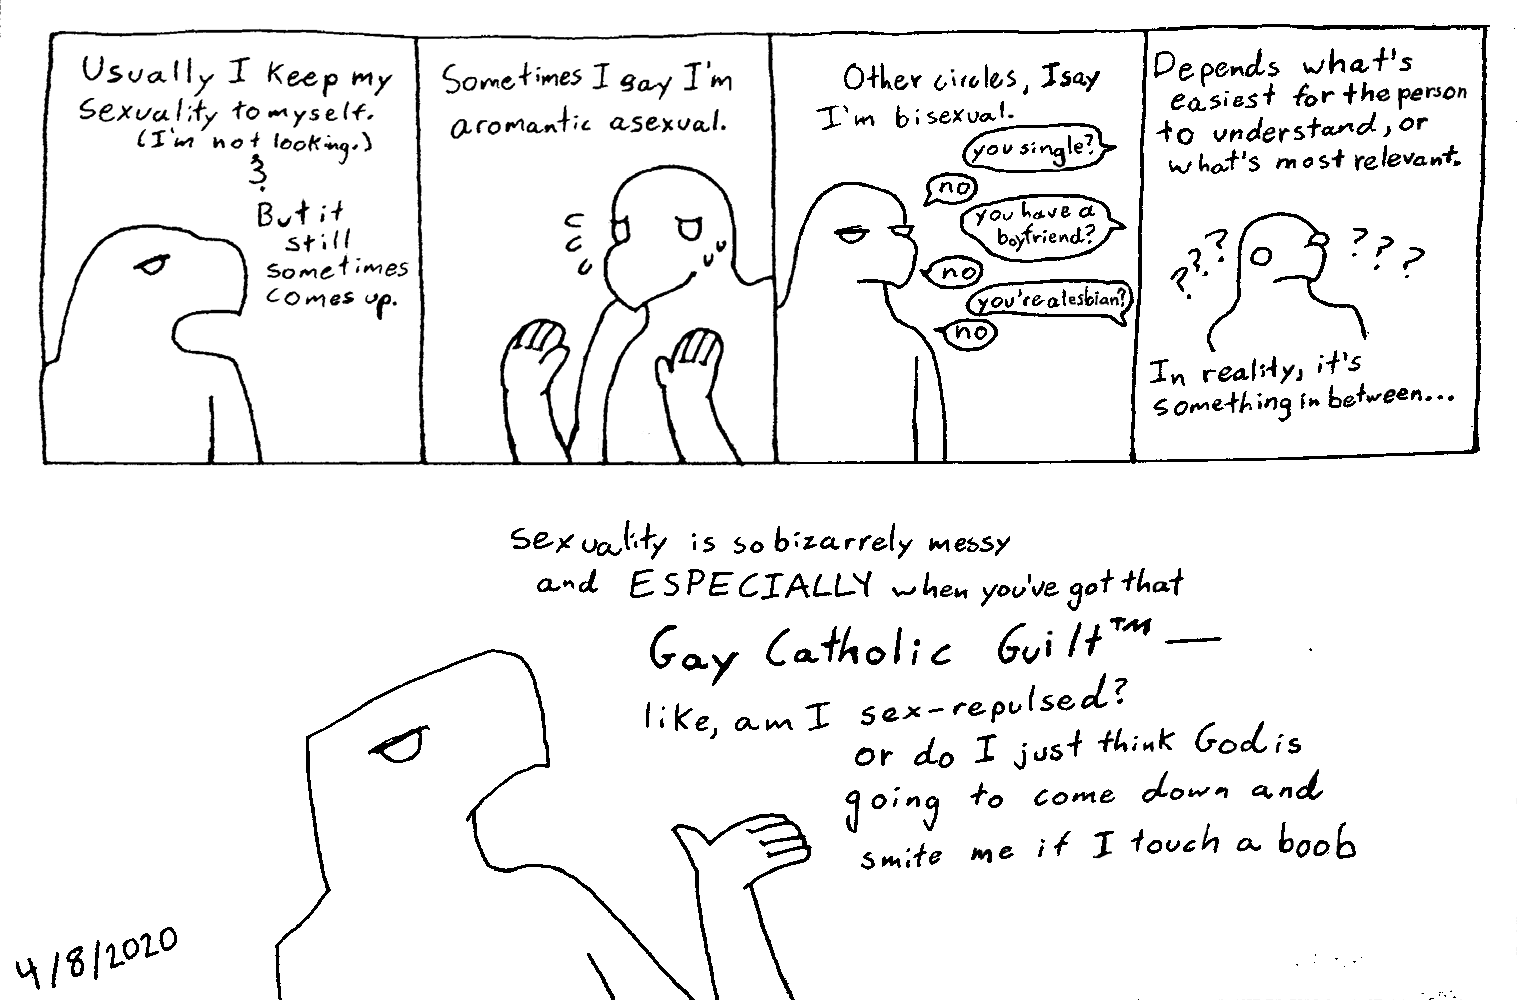 Usually I keep my
sexuality to myself.
(I'm not looking.)
&
But it
still
sometimes
comes up.
Sometimes I say I'm
aromantic asexual.
Other circles, I say
I'm bisexual.
you single?
no
you have a
boyfriend?
no
you're a lesbian?
no
Depends what's
easiest for the person
to understand, or
what's most relevant.
? ? ? ? ? ?
In reality, it's
something in between...
sexuality is so bizarrely messy
and ESPECIALLY when you've got that
Gay Catholic Guilt™ —
like, am I sex-repulsed?
or do I just think God is
going to come down and
smite me if I touch a boob
4/8/2020